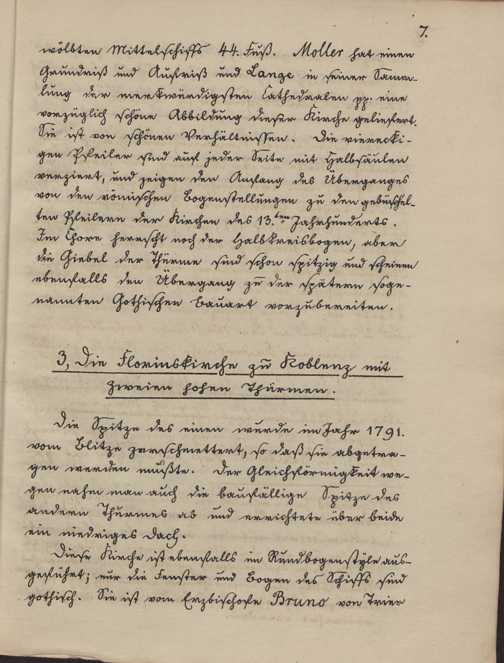 7.
wölbten Mittelschiffs 44. Fuß. Moller hat einen
Grundriß und Aufriß und Lange in seiner Samm-
lung der merkwürdigsten Cathedraalen pp. eine
vorzüglich schöne Abbildung dieser Kirche geliefert.
Sie ist von schönen Verhältnissen. Die vierecki-
gen Pfeiler sind auf jeder Seite mit Halbsäulen
verziert, und zeigen den Anfang des Überganges
von den römischen Bogenstellungen zu den gebüschel-
ten Pfeilern der Kirchen des 13.ten Jahrhunderts.
Im Chore herrscht noch der Halbkreisbogen, aber
die Giebel der Thürme sind schon spitzig und scheinen
ebenfalls den Übergang zu der spätern soge-
nannten Gothischen Bauart vorzubereiten.
3, Die Florinskirche zu Koblenz mit
zweien hohen Thürmen.
Die Spitze des einen wurde im Jahr 1791.
vom Blitze zerschmettert, so daß sie abgetra-
gen werden mußte. Der Gleichförmigkeit we-
gen nahm man auch die baufällige Spitze des
andern Thurmes ab und errichtete über beide
ein niedriges Dach.
Diese Kirche ist ebenfalls im Rundbogenstyle aus-
geführt; nur die Fenster und Bogen des Schiffs sind
gothisch. Sie ist vom Erzbischofe Bruno von Trier